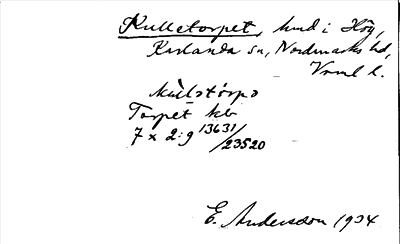 Kulletorpet, hmd i Hög,
Karlanda sn, Nordmarks hd,
Vrml l.
kùlstórpə
Torpet kb
7 x 2:9 13631/23520
E. Andersson 1934